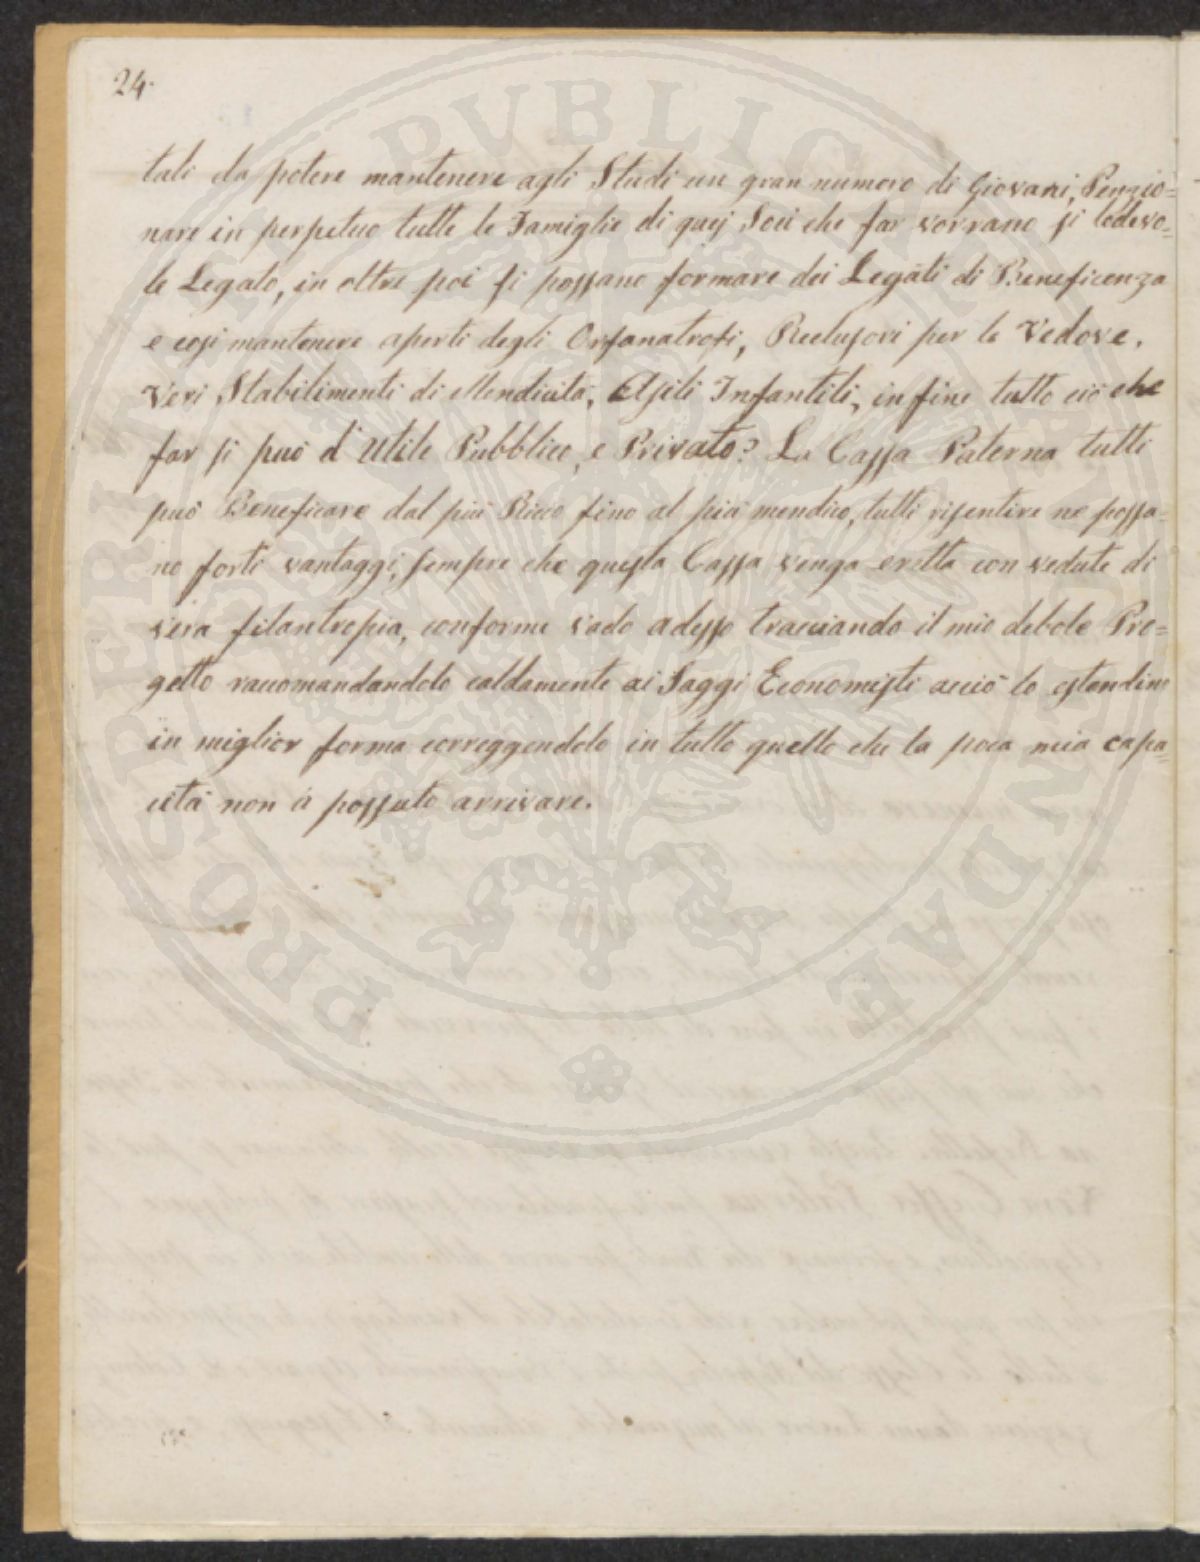 24.
tali da potere mantenere agli Studi un gran numero di Giovani, Penzio=
nare in perpetuo tutte le Famiglie di quej Soci che far vorrano si lodevo=
le Legato, in oltre poi si possano formare dei Legati di Beneficenza
e cosi mantenere aperti degli Orfanatrofi, Reclusori per le Vedove,
Veri Stabilimenti di Mendicità, Asili Infantili, in fine tutto ciò che
far si può d'Utile Pubblico, e Privato? La Cassa Paterna tutti
può Beneficare dal più Ricco fino al più mendico, tutti risentire ne possa=
no forti vantaggi, sempre che questa Cassa venga eretta con vedute di
vera filantropia, conforme vado adesso tracciando il mio debole Pro=
getto raccomandandolo caldamente ai Saggi Economisti acciò lo estendino
in miglior forma correggendolo in tutto quello che la poca mia capa=
cità non à possuto arrivare.
PROSPERITATI PUBLICAE AUGENDAE